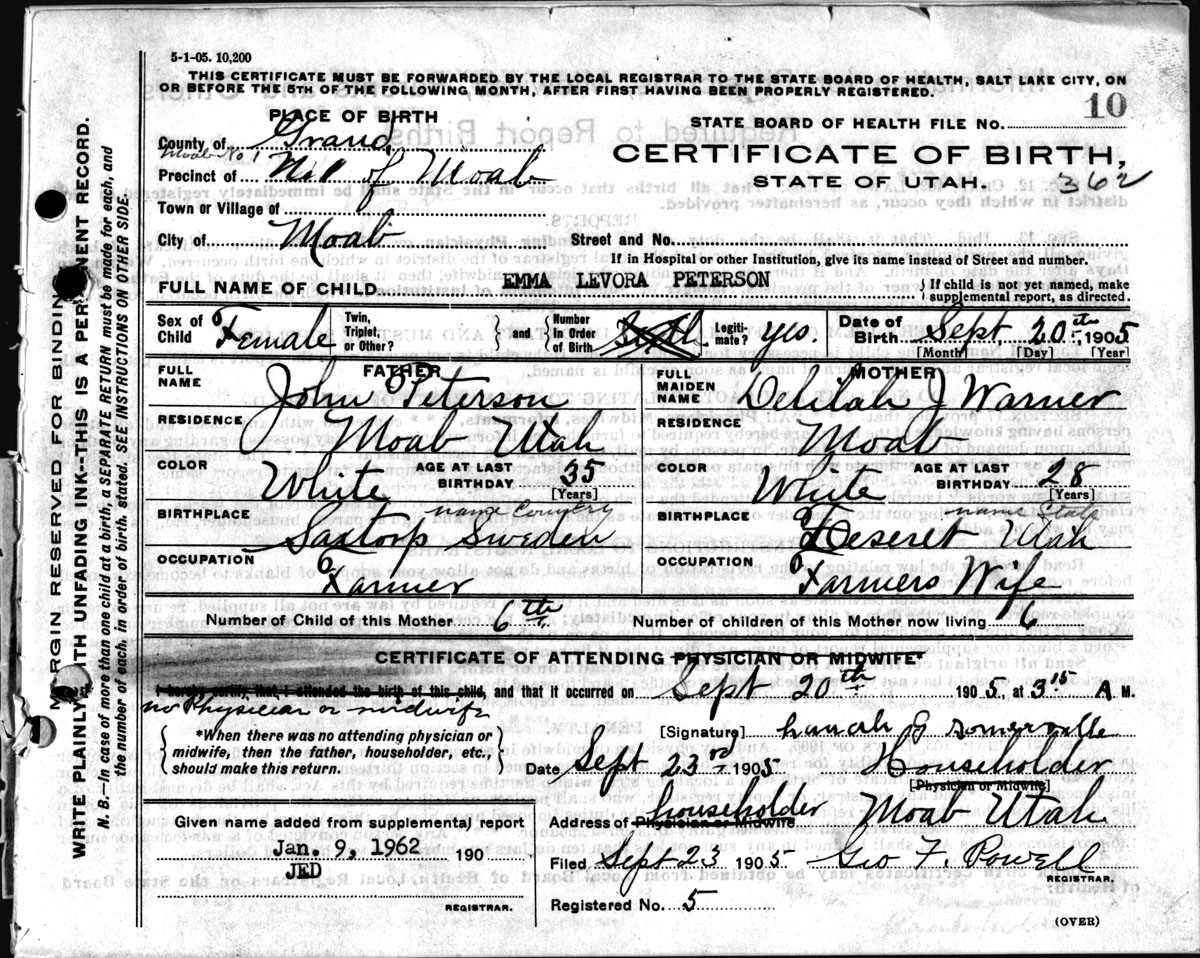 5-1-05. 10,200
THIS CERTIFICATE MUST BE FORWARDED BY THE LOCAL REGISTRAR TO THE STATE BOARD OF HEALTH, SALT LAKE CITY, ON
OR BEFORE THE 5TH OF THE FOLLOWING MONTH, AFTER FIRST HAVING BEEN PROPERLY REGISTERED.
PLACE OF BIRTH
STATE BOARD OF HEALTH FILE NO. 10
County of Grand
CERTIFICATE OF BIRTH,
Moab No 1
Precinct of No 1 of Moab
STATE OF UTAH. 362
Town or Village of
City of Moab Street and No.
If in Hospital or other Institution, give its name instead of Street and number.
FULL NAME OF CHILD EMMA LEVORA PETERSON } If child is not yet named, make supplemental report, as directed.
Sex of Child Female Twin, Triplet, or Other? } and { Number In Order of Birth Sixth Legiti- mate? yes. Date of Birth Sept, 20th, 1905
[Month] [Day] [Year]
FATHER
FULL NAME John Peterson
MOTHER
FULL MAIDEN NAME Delilah J Warner
RESIDENCE Moab Utah
RESIDENCE Moab
COLOR White AGE AT LAST BIRTHDAY 35 [Years]
COLOR White AGE AT LAST BIRTHDAY 28 [Years]
name Country
BIRTHPLACE Saxtorp Sweden
name State
BIRTHPLACE Deseret Utah
OCCUPATION Farmer
OCCUPATION Farmers Wife
Number of Child of this Mother 6th Number of children of this Mother now living 6
CERTIFICATE OF ATTENDING PHYSICIAN OR MIDWIFE*
I hereby certify, that I attended the birth of this child, and that it occurred on Sept 20th 1905, at 3 15 A M.
no Physician or midwife
{ *When there was no attending physician or midwife, then the father, householder, etc., should make this return. }
[Signature] hanah G Somerville
Date Sept 23rd 1905 Householder
[Physician or Midwife]
householder
Address of Physician or Midwife Moab Utah
Given name added from supplemental report
Jan. 9, 1962 190
JED
REGISTRAR.
Filed Sept 23 1905. Geo F. Powell
REGISTRAR.
Registered No. 5
(OVER)
MARGIN RESERVED FOR BINDING
WRITE PLAINLY WITH UNFADING INK--THIS IS A PERMANENT RECORD.
N. B.—In case of more than one child at a birth, a SEPARATE RETURN must be made for each, and
the number of each, in order of birth, stated. SEE INSTRUCTIONS ON OTHER SIDE.